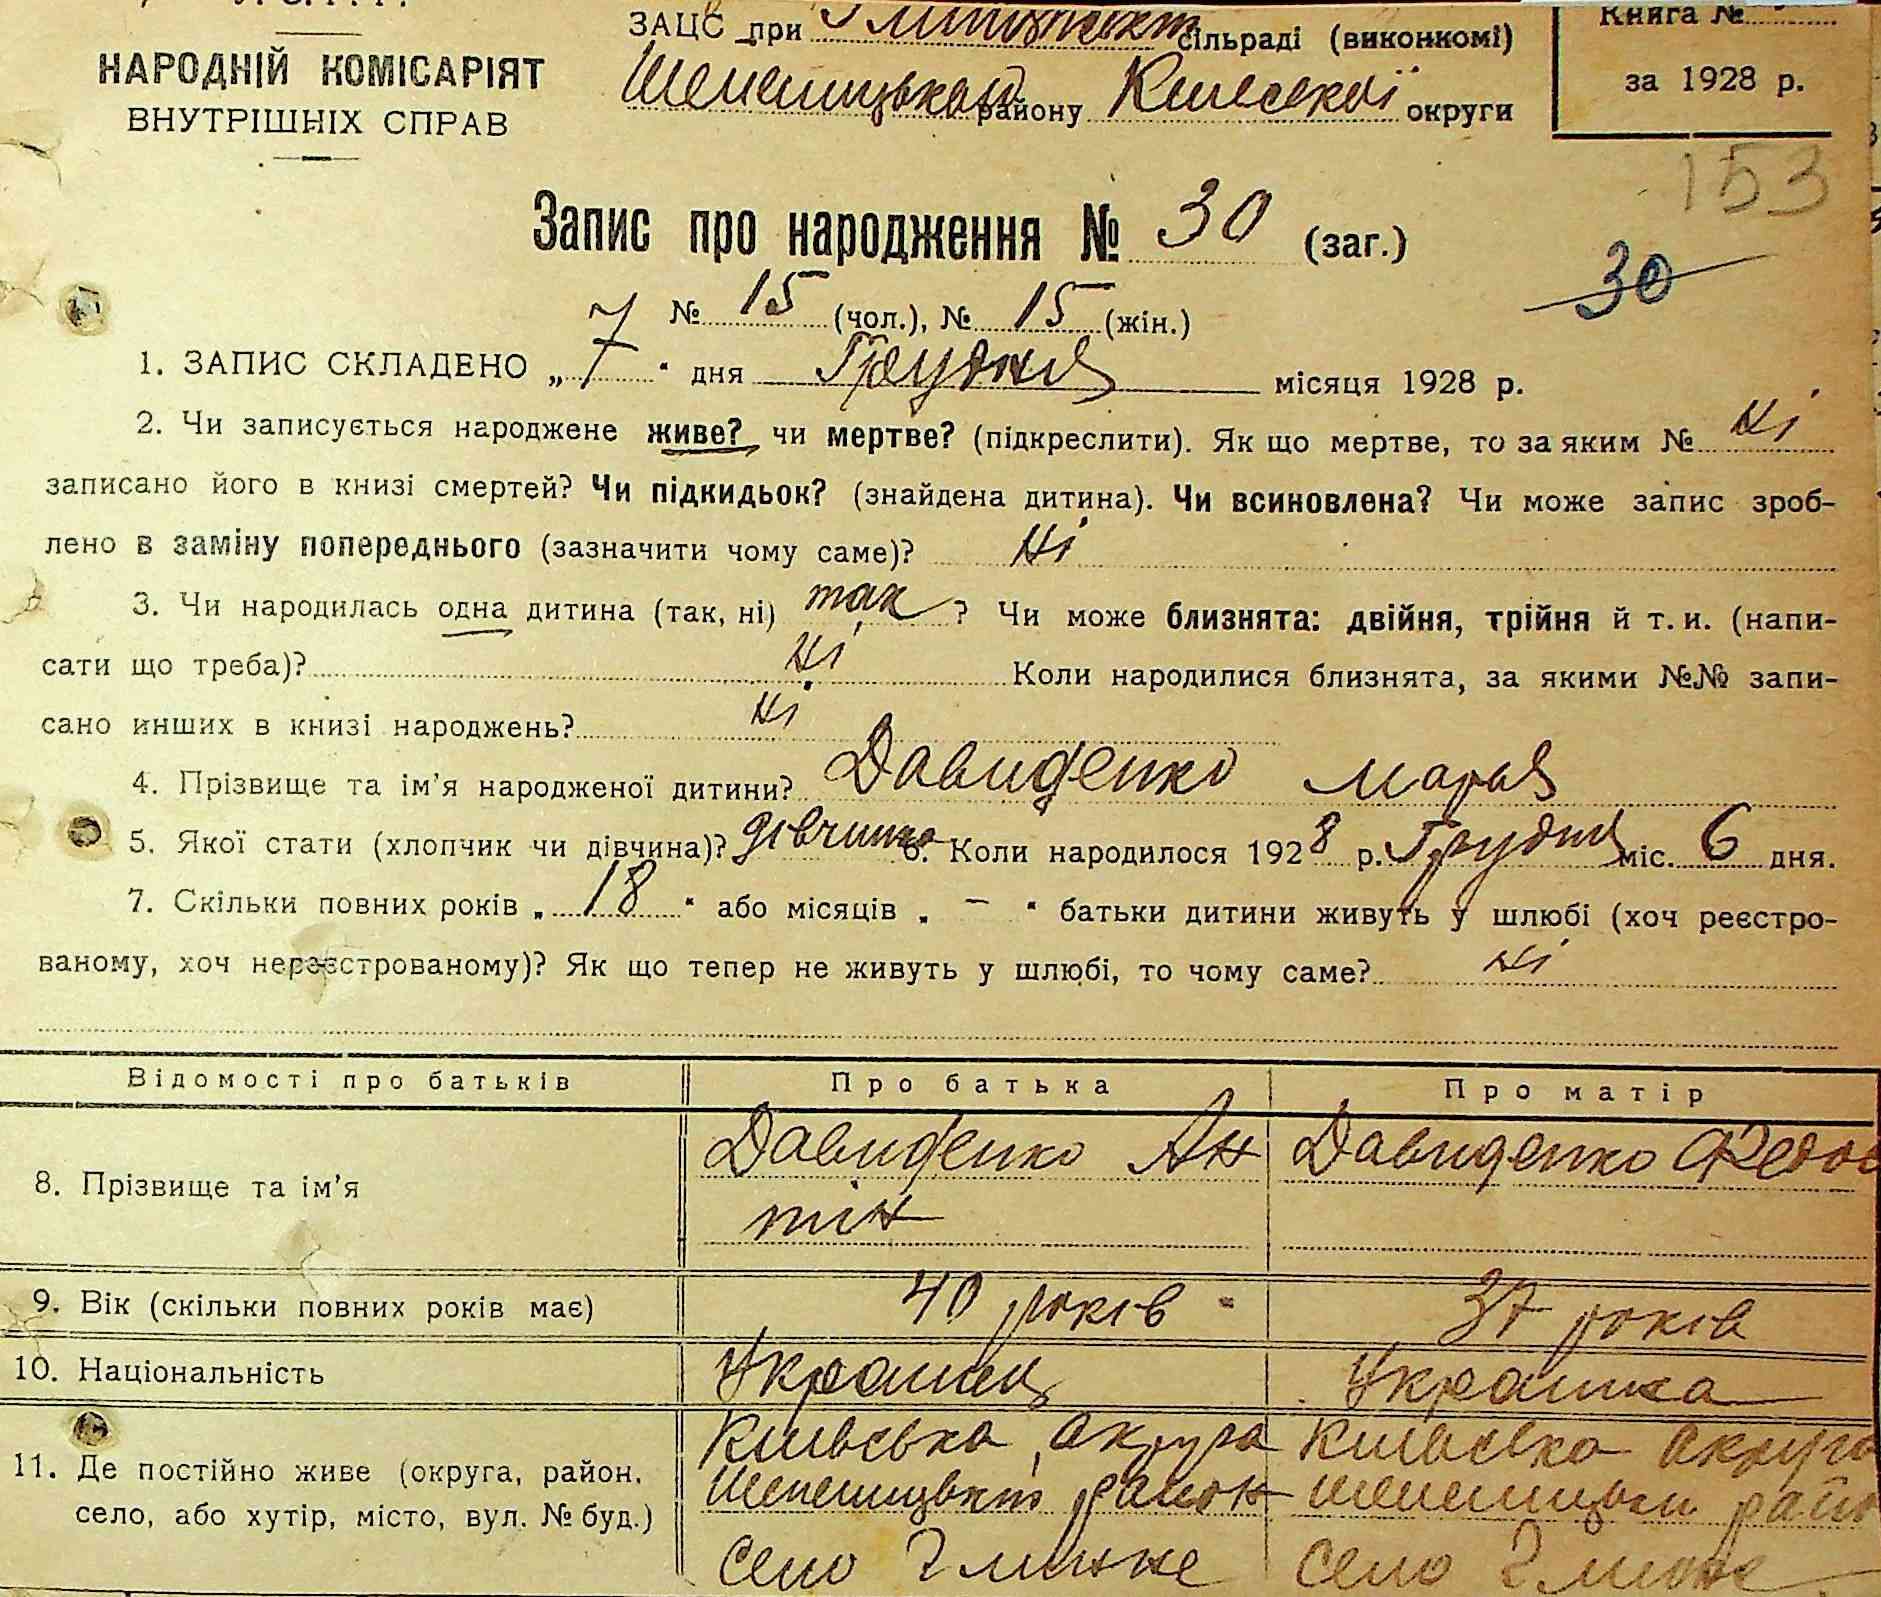 ЗАЦС при сільраді (виконкомі)
Книга №
НАРОДНІЙ КОМІСАРІЯТ
ВНУТРІШНІХ СПРАВ
району Київської округи
за 1928 р.
153
Запис про народження № 30 (заг.)
30
7 № 15 (чол.), № 15 (жін.)
1. ЗАПИС СКЛАДЕНО „7“ дня Грудня місяця 1928 р.
2. Чи записується народжене живе? чи мертве? (підкреслити). Як що мертве, то за яким № ні
записано його в книзі смертей? Чи підкидьок? (знайдена дитина). Чи всиновлена? Чи може запис зроб-
лено в заміну попереднього (зазначити чому саме)? ні
3. Чи народилась одна дитина (так, ні) так ? Чи може близнята: двійня, трійня й т. и. (напи-
сати що треба)? ні Коли народилися близнята, за якими №№ запи-
сано инших в книзі народжень? ні
4. Прізвище та ім'я народженої дитини? Давиденко Марія
5. Якої стати (хлопчик чи дівчина)? дівчина 6. Коли народилося 1928 р. Грудня міс. 6 дня.
7. Скільки повних років „18“ або місяців „–“ батьки дитини живуть у шлюбі (хоч реєстро-
ваному, хоч нереєстрованому)? Як що тепер не живуть у шлюбі, то чому саме? ні
Відомості про батьків Про батька Про матір
8. Прізвище та ім'я Давиденко Ан Давиденко Федос
тін
9. Вік (скільки повних років має) 40 років 37 років
10. Національність Українец Українка
11. Де постійно живе (округа, район, Київська округа Київська округа
село, або хутір, місто, вул. № буд.) район
село село